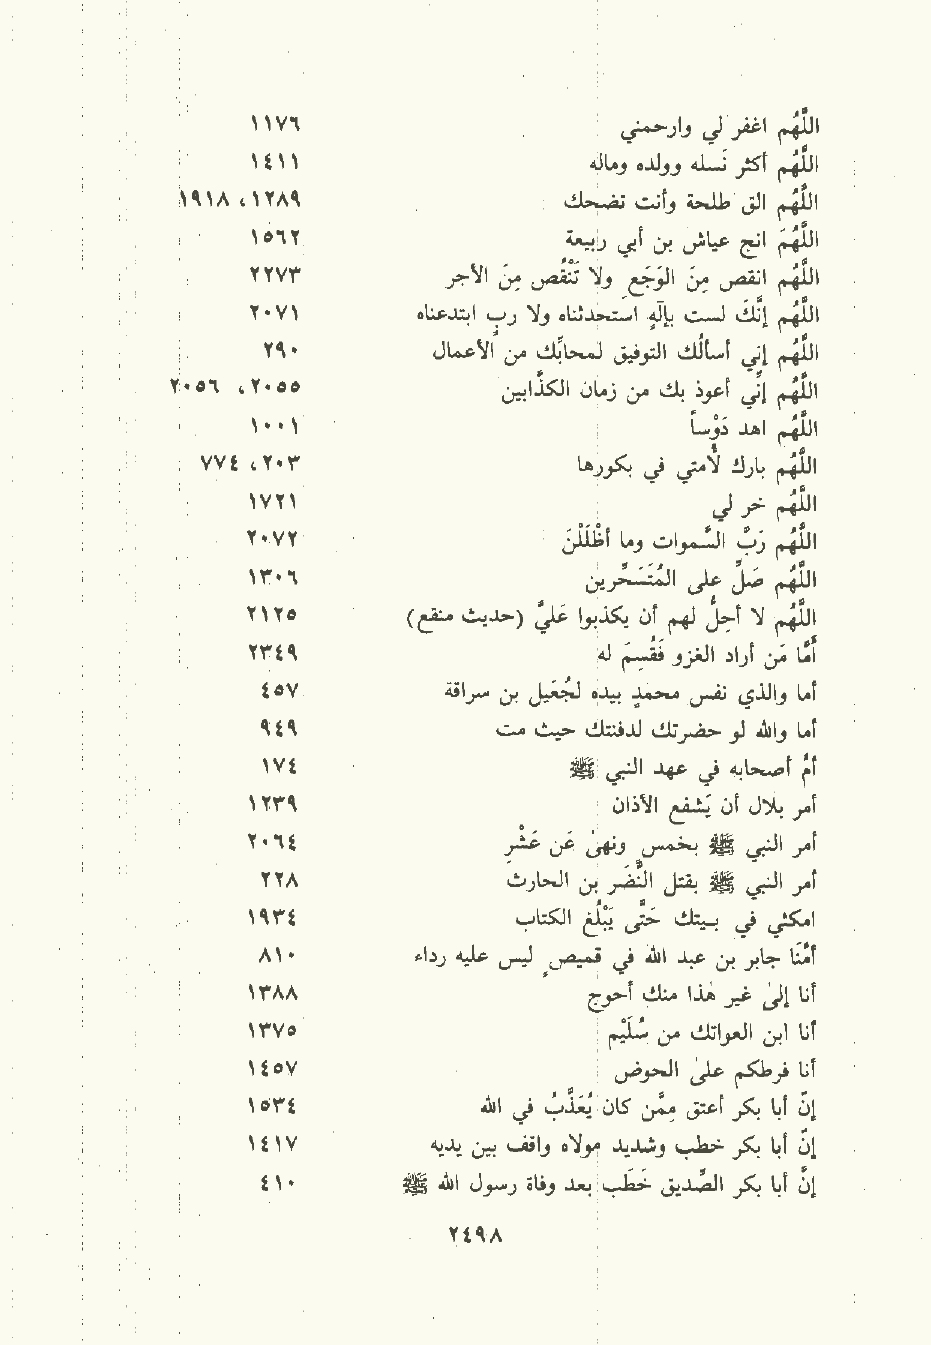 اللَّهُم اغفر لي وارحمني ١١٧٦
اللَّهُم أكثر نَسله وولده وماله ١٤١١
اللَّهُم الق طلحة وأنت تضحك ١٢٨٩، ١٩١٨
اللَّهُمَ انج عياش بن أبي ربيعة ١٥٦٢
اللَّهُم انقص مِنَ الوَجَعِ ولا تَنْقُص مِنَ الأجر ٢٢٧٣
اللَّهُم إنَّكَ لست بإلَهٍ استحدثناه ولا ربٍ ابتدعناه ٢٠٧١
اللَّهُم إني أسألُك التوفيق لمحابِّك من الأعمال ٢٩٠
اللَّهُم إنِّي أعوذ بك من زمان الكذَّابين ٢٠٥٥، ٢٠٥٦
اللَّهُم اهد دَوْساً ١٠٠١
اللَّهُم بارك لأُمتي في بكورها ٢٠٣، ٧٧٤
اللَّهُم خر لي ١٧٢١
اللَّهُم رَبَّ السَّموات وما أظْلَلْنَ ٢٠٧٢
اللَّهُم صَلِّ على المُتَسَحِّرين ١٣٠٦
اللَّهُم لا أحِلُّ لهم أن يكذبوا عَليَّ (حديث منقع) ٢١٢٥
أَمَّا مَن أراد الغزو فَقُسِمَ له ٢٣٤٩
أما والذي نفس محمدٍ بيده لجُعَيل بن سراقة ٤٥٧
أما والله لو حضرتك لدفنتك حيث مت ٩٤٩
أمُ أصحابه في عهد النبي ﷺ ١٧٤
أمر بلال أن يَشفع الأذان ١٢٣٩
أمر النبي ﷺ بخمسٍ ونهىٰ عَن عَشْرِ ٢٠٦٤
أمر النبي ﷺ بقتل النَّضَر بن الحارث ٢٢٨
امكثي في بيتك حَتَّى يَبْلُغ الكتاب ١٩٣٤
أمَّنَا جابر بن عبد الله في قميصٍ ليس عليه رداء ٨١٠
أنا إلىٰ غير هٰذا منك أحوج ١٣٨٨
أنا ابن العواتك من سُلَيْم ١٣٧٥
أنا فرطكم علىٰ الحوض ١٤٥٧
إنّ أبا بكر أعتق مِمَّن كان يُعَذَّبُ في الله ١٥٣٤
إنّ أبا بكر خطب وشديد مولاه واقف بين يديه ١٤١٧
إنَّ أبا بكر الصِّديق خَطَب بعد وفاة رسول الله ﷺ ٤١٠
٢٤٩٨